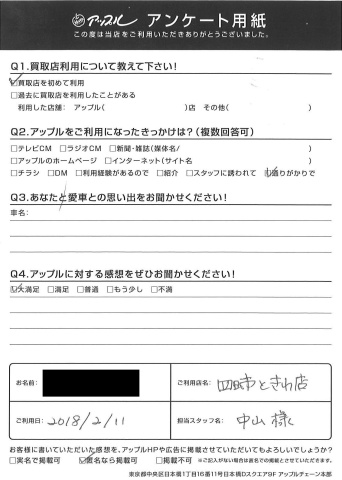 アップル アンケート用紙
この度は当店をご利用いただきありがとうございました。
Q1.買取店利用について教えて下さい!
☑買取店を初めて利用
□過去に買取店を利用したことがある
利用した店舗: アップル( )店 その他( )
Q2.アップルをご利用になったきっかけは?(複数回答可)
□テレビCM □ラジオCM □新聞・雑誌(媒体名/ )
□アップルのホームページ □インターネット(サイト名 )
□チラシ □DM □利用経験があるので □紹介 □スタッフに誘われて ☑通りがかりで
Q3.あなたと愛車との思い出をお聞かせください!
車名:
Q4.アップルに対する感想をぜひお聞かせください!
☑大満足 □満足 □普通 □もう少し □不満
お名前:
ご利用店名: 四日市ときわ店
ご利用日: 2018/2/11
担当スタッフ名: 中山様
お客様に書いていただいた感想を、アップルHPや広告に掲載させていただいてもよろしいでしょうか?
□実名で掲載可 ☑匿名なら掲載可 □掲載不可 ※ご記入がない場合は匿名での掲載とさせていただきます。
東京都中央区日本橋1丁目16番11号日本橋Dスクエア9F アップルチェーン本部